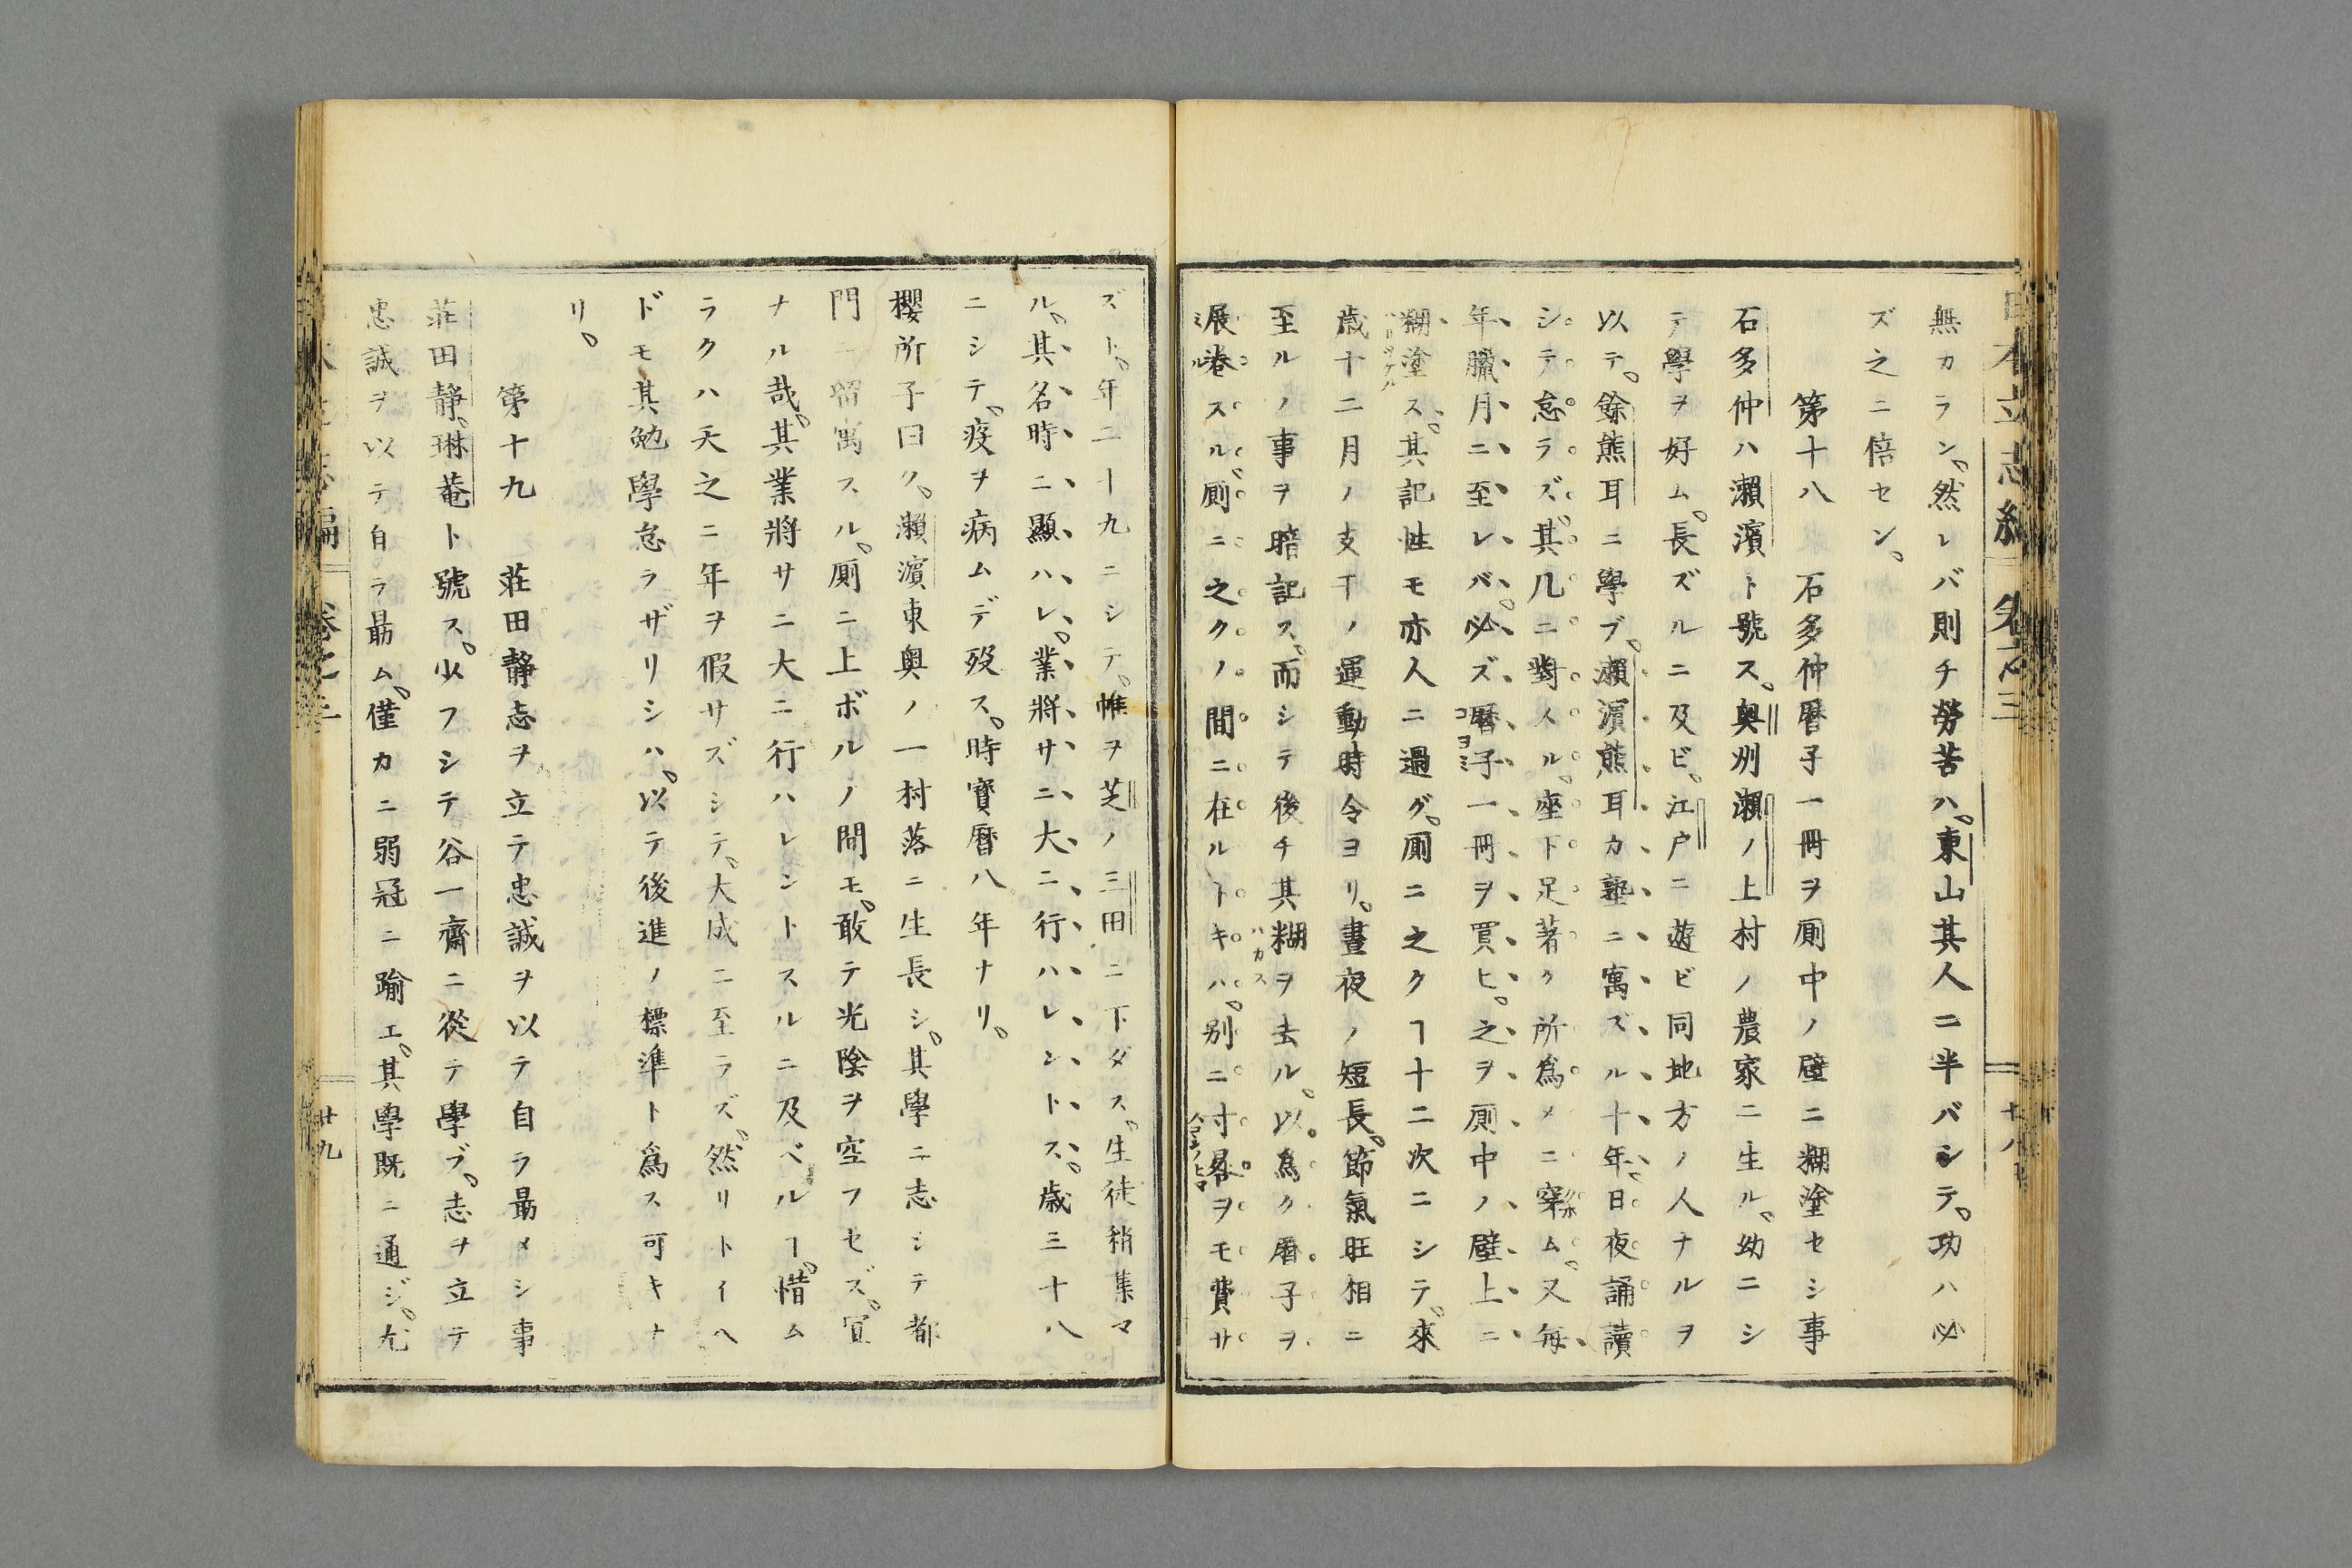 無カラン。然レバ則チ勞苦ハ。東山其人ニ半バシテ。功ハ必
ズ之ニ倍セン。
第十八　石多仲曆子一冊ヲ厠中ノ壁ニ糊塗セシ事
石多仲ハ瀨濱ト號ス。奥州瀨ノ上村ノ農家ニ生ル。幼ニシ
テ學ヲ好ム。長ズルニ及ビ。江戸ニ遊ビ同地方ノ人ナルヲ
以テ。餘熊耳ニ學ブ。瀨濱熊耳カ塾ニ寓ズル十年。日夜誦讀
シテ怠ラズ。其几ニ對スル。座下足著ク所爲メニ窪ム。又每
年臘月ニ至レバ。必ズ曆子一冊ヲ買ヒ。之ヲ厠中ノ壁上ニ
糊塗ス。其記性モ亦人ニ過グ。厠ニ之クヿ十二次ニシテ。來
歳十二月ノ支干ノ運動時令ヨリ。晝夜ノ短長。節氣旺相ニ
至ルノ事ヲ暗記ス。而シテ後チ其糊ヲ去ル。以爲ク曆子ヲ
展卷スル。厠ニ之クノ間ニ在ルトキハ。別ニ寸晷ヲモ費サ
ズト。年二十九ニシテ。帷ヲ芝ノ三田ニ下ダス。生徒稍集マ
ル。其名時ニ顯ハレ。業將サニ大ニ行ハレントス。歳三十八
ニシテ。疫ヲ病ムデ歿ス。時寶曆八年ナリ。
櫻所子曰ク。瀨濱東奥ノ一村落ニ生長シ。其學ニ志シテ都
門ニ留寓スル。厠ニ上ボルノ間モ。敢テ光陰ヲ空フセズ。宜
ナル哉。其業將サニ大ニ行ハレントスルニ及ベルヿ。惜ム
ラクハ天之ニ年ヲ假サズシテ。大成ニ至ラズ。然リトイヘ
ドモ其勉學怠ラザリシハ。以テ後進ノ標準ト爲ス可キナ
リ。
第十九　莊田靜志ヲ立テ忠誠ヲ以テ自ラ勗メシ事
莊田靜。琳菴ト號ス。少フシテ谷一齋ニ從テ學ブ。志ヲ立テ
忠誠ヲ以テ自ラ勗ム。僅カニ弱冠ニ踰エ。其學既ニ通ジ。尤
廿九